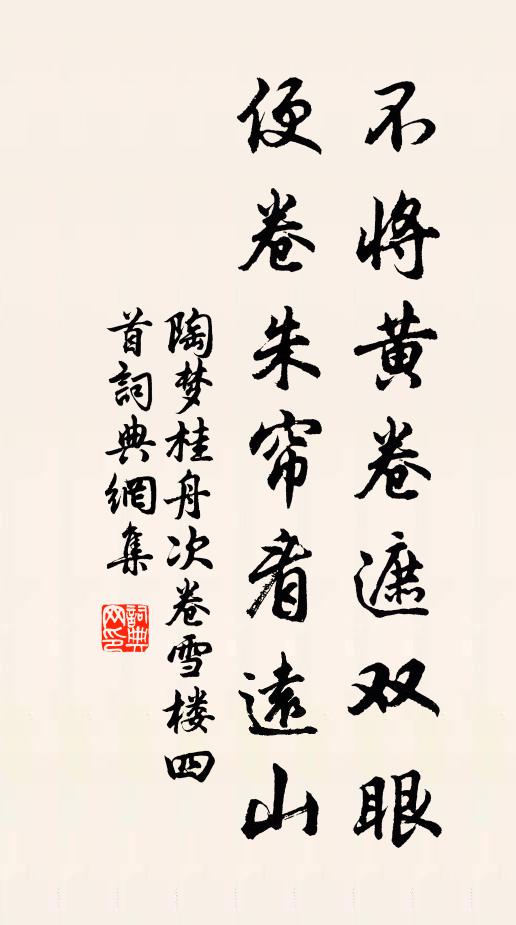 不将黄卷遮双眼
便卷朱帘看遠山
陶梦桂舟次卷雪楼四
首詞典網集
詞典网印